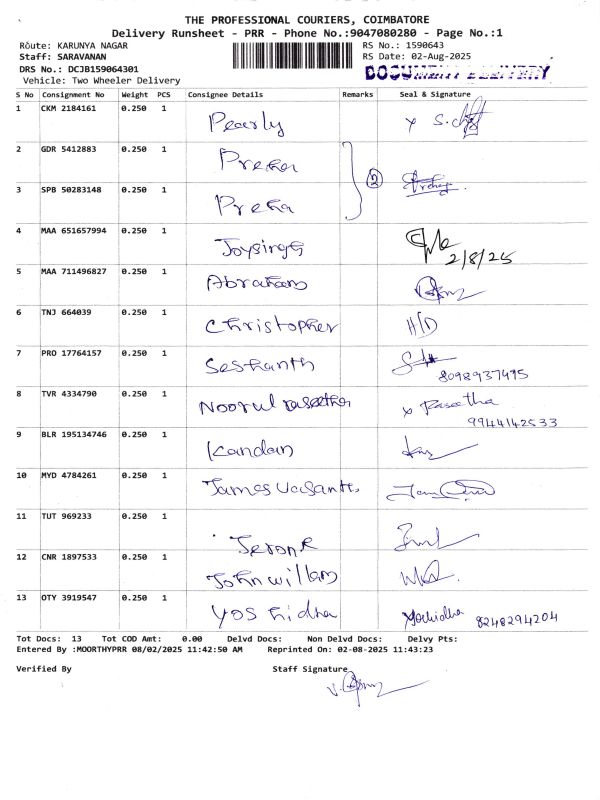 THE PROFESSIONAL COURIERS, COIMBATORE
Delivery Runsheet - PRR - Phone No.:9047080280 - Page No.:1
Route: KARUNYA NAGAR RS No.: 1590643
Staff: SARAVANAN RS Date: 02-Aug-2025
DRS No.: DCJB159064301 DOCUMENT DELIVERY
Vehicle: Two Wheeler Delivery
S No Consignment No Weight PCS Consignee Details Remarks Seal & Signature
1 CKM 2184161 0.250 1 Pearly
2 GDR 5412883 0.250 1 Prekha 2
3 SPB 50283148 0.250 1 Prekha
4 MAA 651657994 0.250 1 Joysingh 2/8/25
5 MAA 711496827 0.250 1 Abraham
6 TNJ 664039 0.250 1 Christopher H/D
7 PRO 17764157 0.250 1 Seshanth 8098937495
8 TVR 4334790 0.250 1 Noorul raseetha x Raseetha
9944142533
9 BLR 195134746 0.250 1 Kandan
10 MYD 4784261 0.250 1 James Vasanth
11 TUT 969233 0.250 1 Jerome
12 CNR 1897533 0.250 1 John william
13 OTY 3919547 0.250 1 Yoshidha Yoshidha 8248294204
Tot Docs: 13 Tot COD Amt: 0.00 Delvd Docs: Non Delvd Docs: Delvy Pts:
Entered By :MOORTHYPRR 08/02/2025 11:42:50 AM Reprinted On: 02-08-2025 11:43:23
Verified By Staff Signature